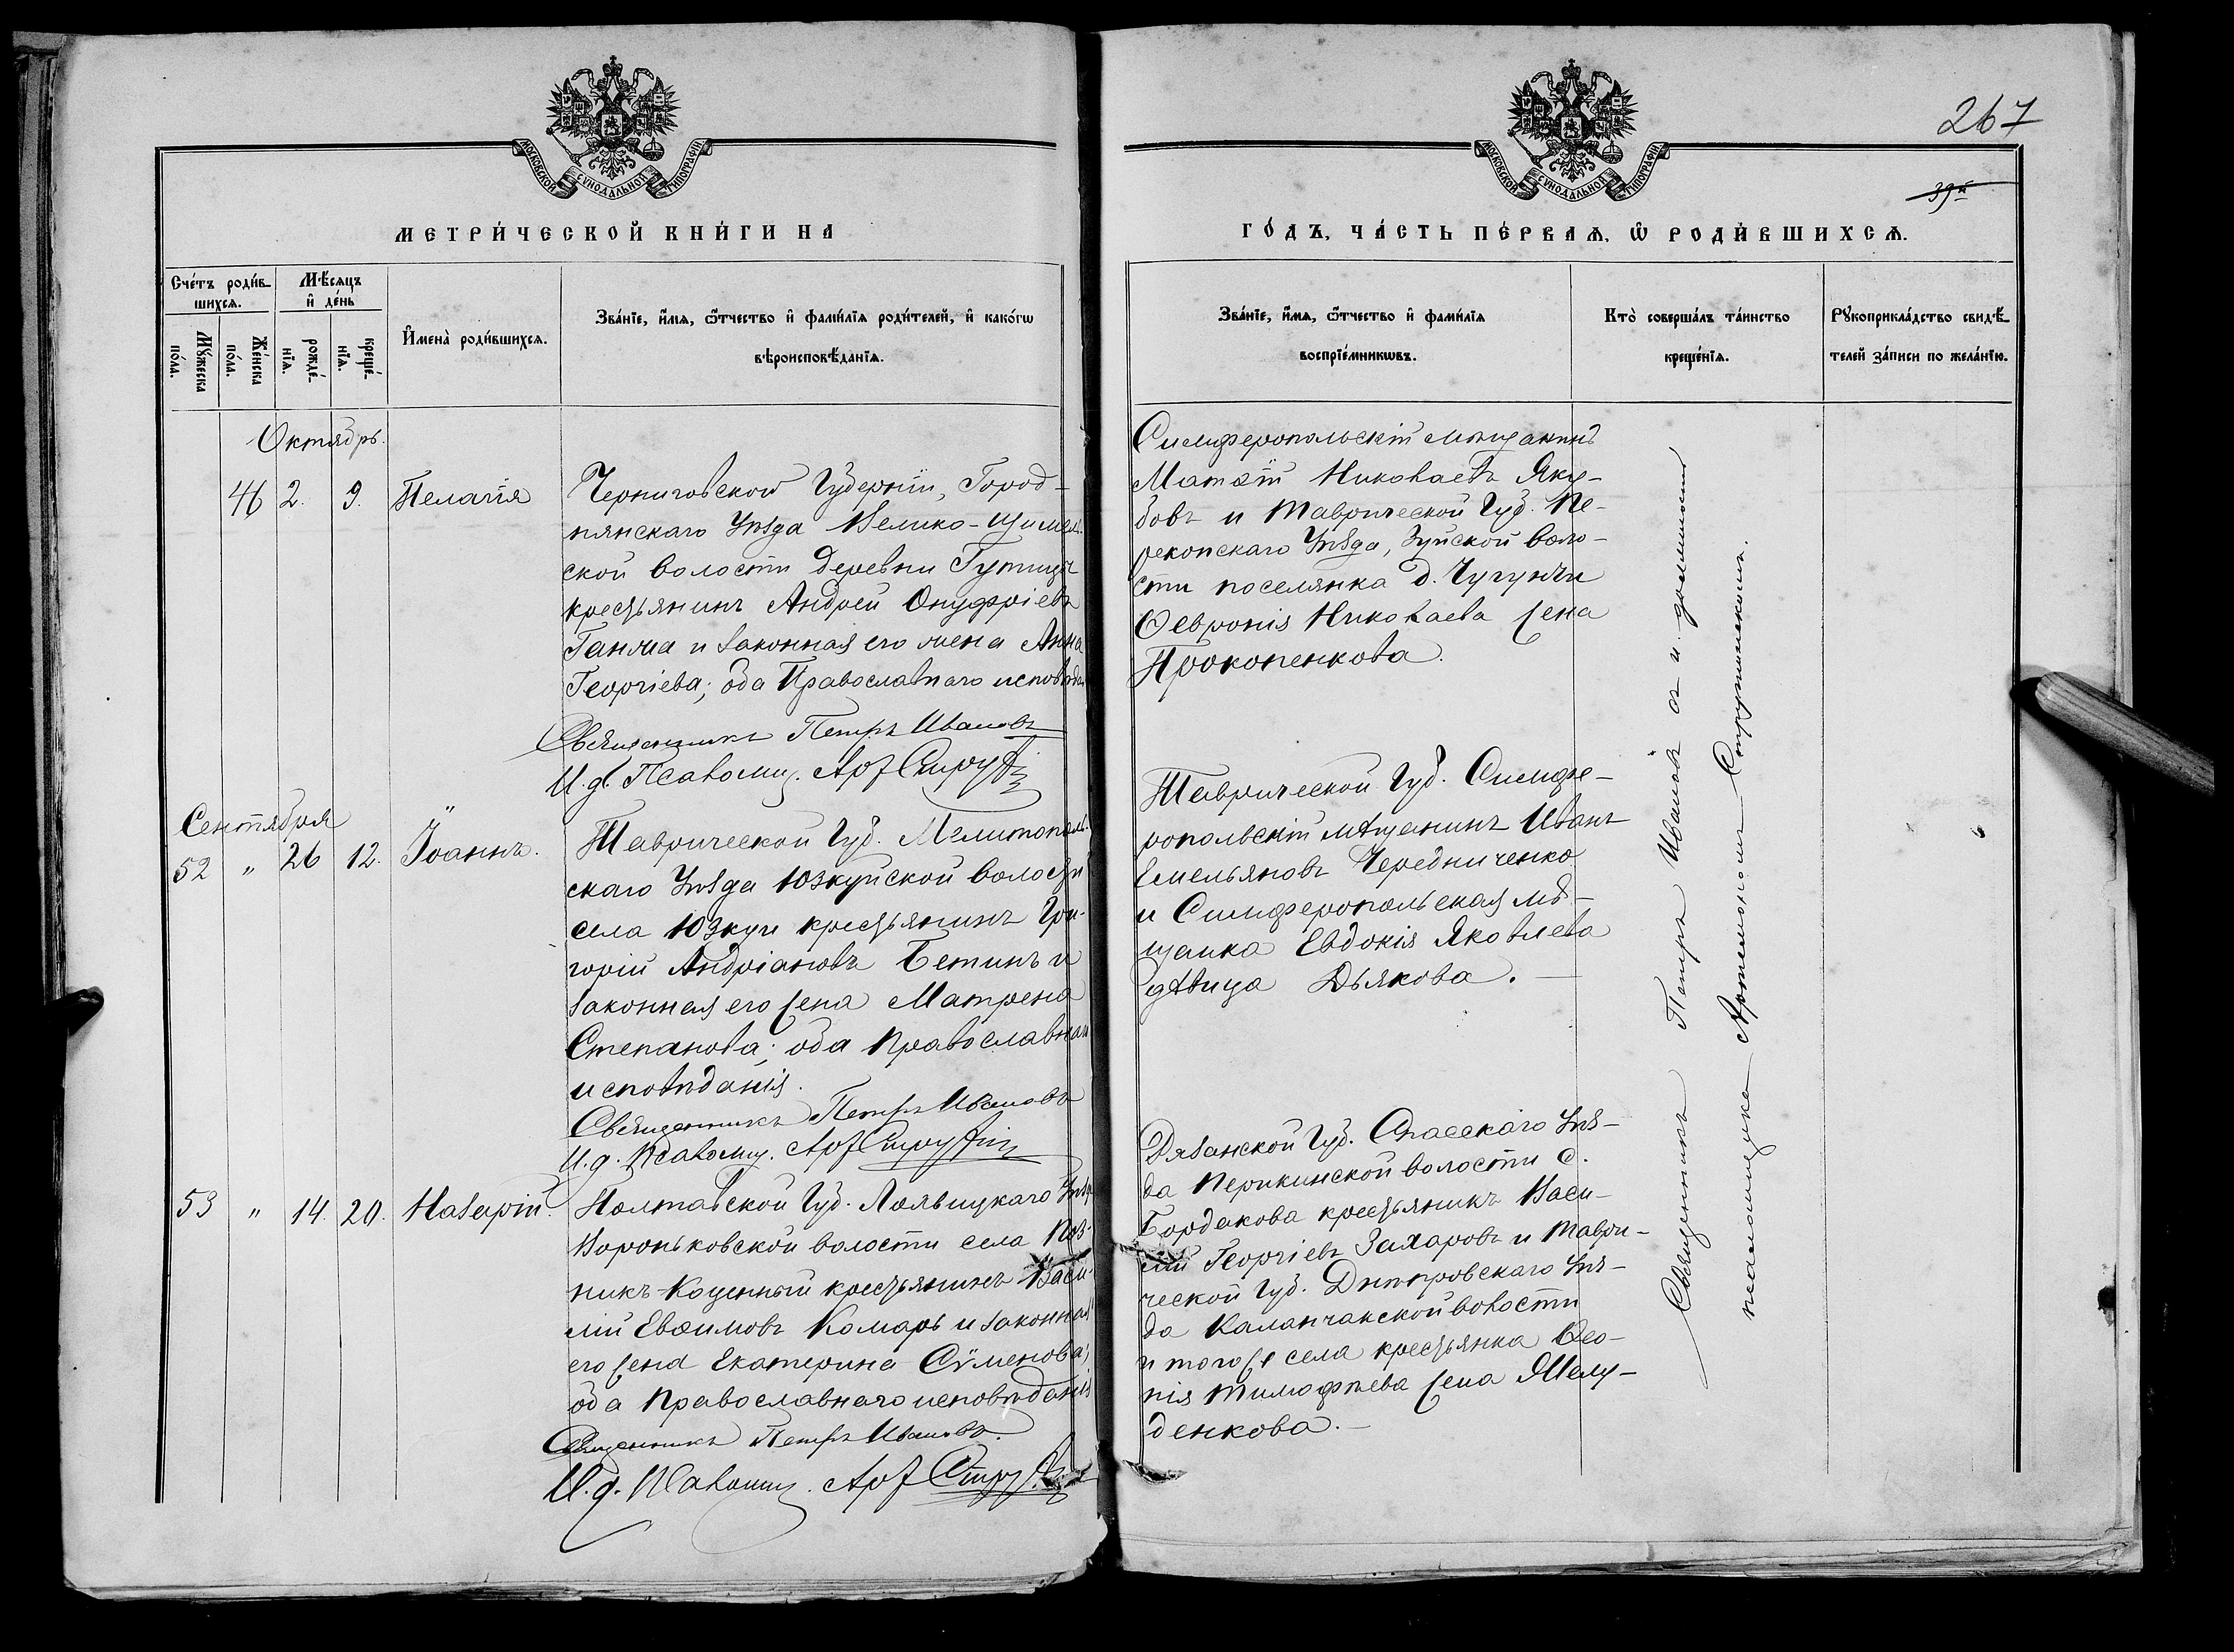 МОСКОВСКОЙ СУНОДАЛЬНОЙ ТИПОГРАФІИ
МЕТРИ́ЧЕСКОЙ КНИ́ГИ НА
Сче́тъ роди́в-
шихсѧ.
Мѣ́сѧцъ
и҆ де́нь
Мꙋ́жеска
по́ла.
Же́нска
по́ла.
рожде́-
нїѧ.
креще́-
нїѧ.
И҆мена̀ роди́вшихсѧ.
Зва́нїе, и҆́мѧ, ѻ҆́тчество и҆ фами́лїѧ роди́телей, и҆ како́гѡ
вѣроисповѣ́данїѧ.
Октябрь.
46 2. 9. Пелагія
Черниговской Губерніи, Город-
нянскаго Уѣзда Велико-Щимел-
ской волости деревни Гутища
крестьянинъ Андрей Онуфріевъ
и законная его жена Анна
Георгіева; оба Православнаго исповѣда
Священникъ Петръ Ивановъ
И. д. Псаломщ. Арт Струт
Сентября
52 " 26 12. Іоаннъ.
Таврической Губ. Мелитополь-
скаго Уѣзда Юзкуйской волости
села Юзкуи крестьянинъ Гри-
горій Андріановъ Бетинъ и
законная его жена Матрена
Степанова; оба Православнаго
исповѣданія.
Священникъ Петръ Ивановъ
И. д. Псаломщ. Арт Струт
53 " 14. 20. Назарій.
Полтавской Губ. Уѣзд
Вороньковской волости села
крестьянинъ Васи-
лій Евѳимовъ Комарь и законная
его жена Екатерина Сѵменова;
оба Православнаго исповѣданія
Священникъ Петръ Ивановъ.
И. д. Псаломщ. Арт Струт
267
39й
МОСКОВСКОЙ СУНОДАЛЬНОЙ ТИПОГРАФІИ
ГО́ДЪ, ЧА́СТЬ ПЕ́РВАѦ, Ѡ҆ РОДИ́ВШИХСѦ.
Зва́нїе, и҆́мѧ, ѻ҆́тчество и҆ фами́лїѧ
воспрїе́мникѡвъ.
Кто̀ соверша́лъ та́инство
креще́нїѧ.
Рꙋкоприкла́дство свидѣ́-
телей за́писи по жела́нїю.
Симферопольскій мѣщанинъ
Матѳій Николаевъ Яку-
бовъ и Таврической Губ. Пе-
рекопскаго Уѣзда, Зуйской воло-
сти поселянка д. Чугунчи
Ѳевронія Николаева жена
Прокопенкова.
Таврической Губ. Симфе-
ропольскій мѣщанинъ Иванъ
Емельяновъ Чередниченко
и Симферопольская мѣ-
щанка Евдокія Яковлева
дѣвица Дьякова.
Рязанской Губ. Спасскаго Уѣз-
да Перикинской волости с.
Бордакова крестьянинъ Васи-
лій Георгіевъ Захаровъ и Таври-
ческой Губ. Днѣпровскаго Уѣз-
да Каланчакской волости
и того же села крестьянка Ѳео-
нія Тимофѣева жена Шелу-
денкова.
Священникъ Петръ Ивановъ съ и. должности
псаломщика Артемономъ Струтинскимъ.